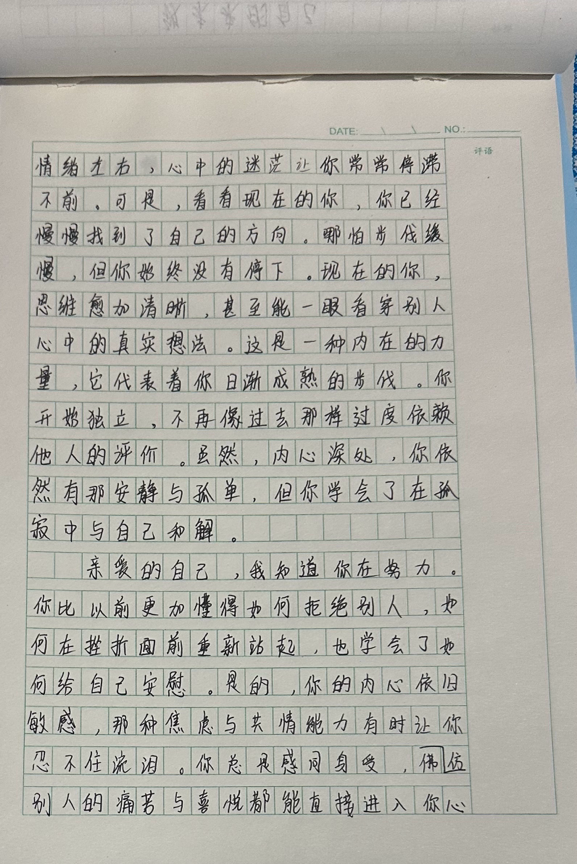 DATE: / / NO.:
评语
情绪左右，心中的迷茫让你常常停滞
不前。可是，看看现在的你，你已经
慢慢找到了自己的方向。哪怕步伐缓
慢，但你始终没有停下。现在的你，
思维愈加清晰，甚至能一眼看穿别人
心中的真实想法。这是一种内在的力
量，它代表着你日渐成熟的步伐。你
开始独立，不再像过去那样过度依赖
他人的评价。虽然，内心深处，你依
然有那安静与孤单，但你学会了在孤
寂中与自己和解。
亲爱的自己，我知道你在努力。
你比以前更加懂得如何拒绝别人，如
何在挫折面前重新站起，也学会了如
何给自己安慰。是的，你的内心依旧
敏感，那种焦虑与共情能力有时让你
忍不住流泪。你总是感同身受，佛仿
别人的痛苦与喜悦都能直接进入你心